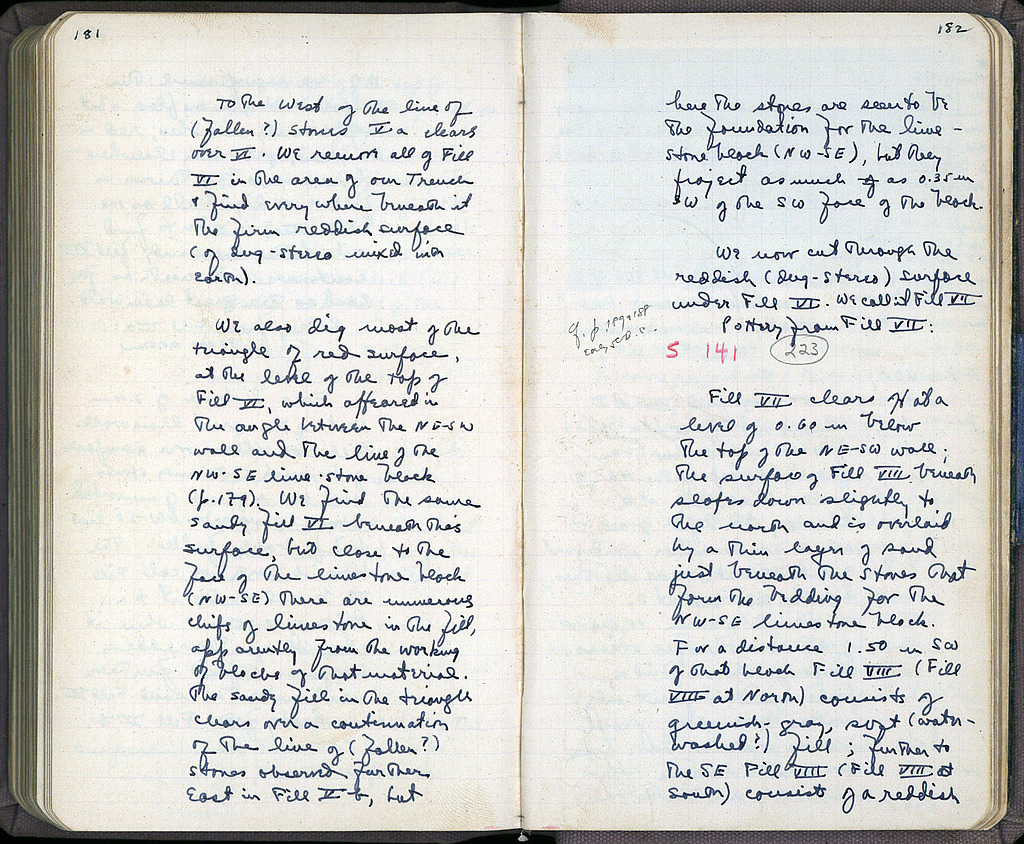 181
To the West of the line of
(fallen?) stones V a clears
over VI. We remove all of Fill
VI in the area of our Trench
& find everywhere beneath it
the firm reddish surface
(of dug-stereo mixed with
earth).
We also dig most of the
triangle of red surface,
at the level of the top of
Fill VI, which appeared in
the angle between the NE-SW
wall and the line of the
NW-SE lime-stone block
(p.179). We find the same
sandy fill VI beneath this
surface, but close to the
face of the limestone block
(NW-SE) there are numerous
chips of limestone in the fill,
apparently from the working
of blocks of that material.
The sandy fill in the triangle
clears over a continuation
of the line of (fallen?)
stones observed further
East in Fill V-b, but
182
here the stones are seen to be
the foundation for the lime-
stone block (NW-SE), but they
project as much as 0.35 m
SW of the SW face of the block.
We now cut through the
reddish (dug-stereo) surface
under Fill VI. We call it Fill VII
Pottery from Fill VII:
S 141 223
Fill VII clears off at a
level of 0.60 m below
the top of the NE-SW wall;
the surface of Fill VIII beneath
slopes down slightly to
the north and is overlaid
by a thin layer of sand
just beneath the stones that
form the bedding for the
NW-SE limestone block.
For a distance 1.50 m SW
of that block Fill VIII (Fill
VIII at North) consists of
greenish-gray, soft (water-
washed?) fill; further to
the SE Fill VIII (Fill VIII at
South) consists of a reddish